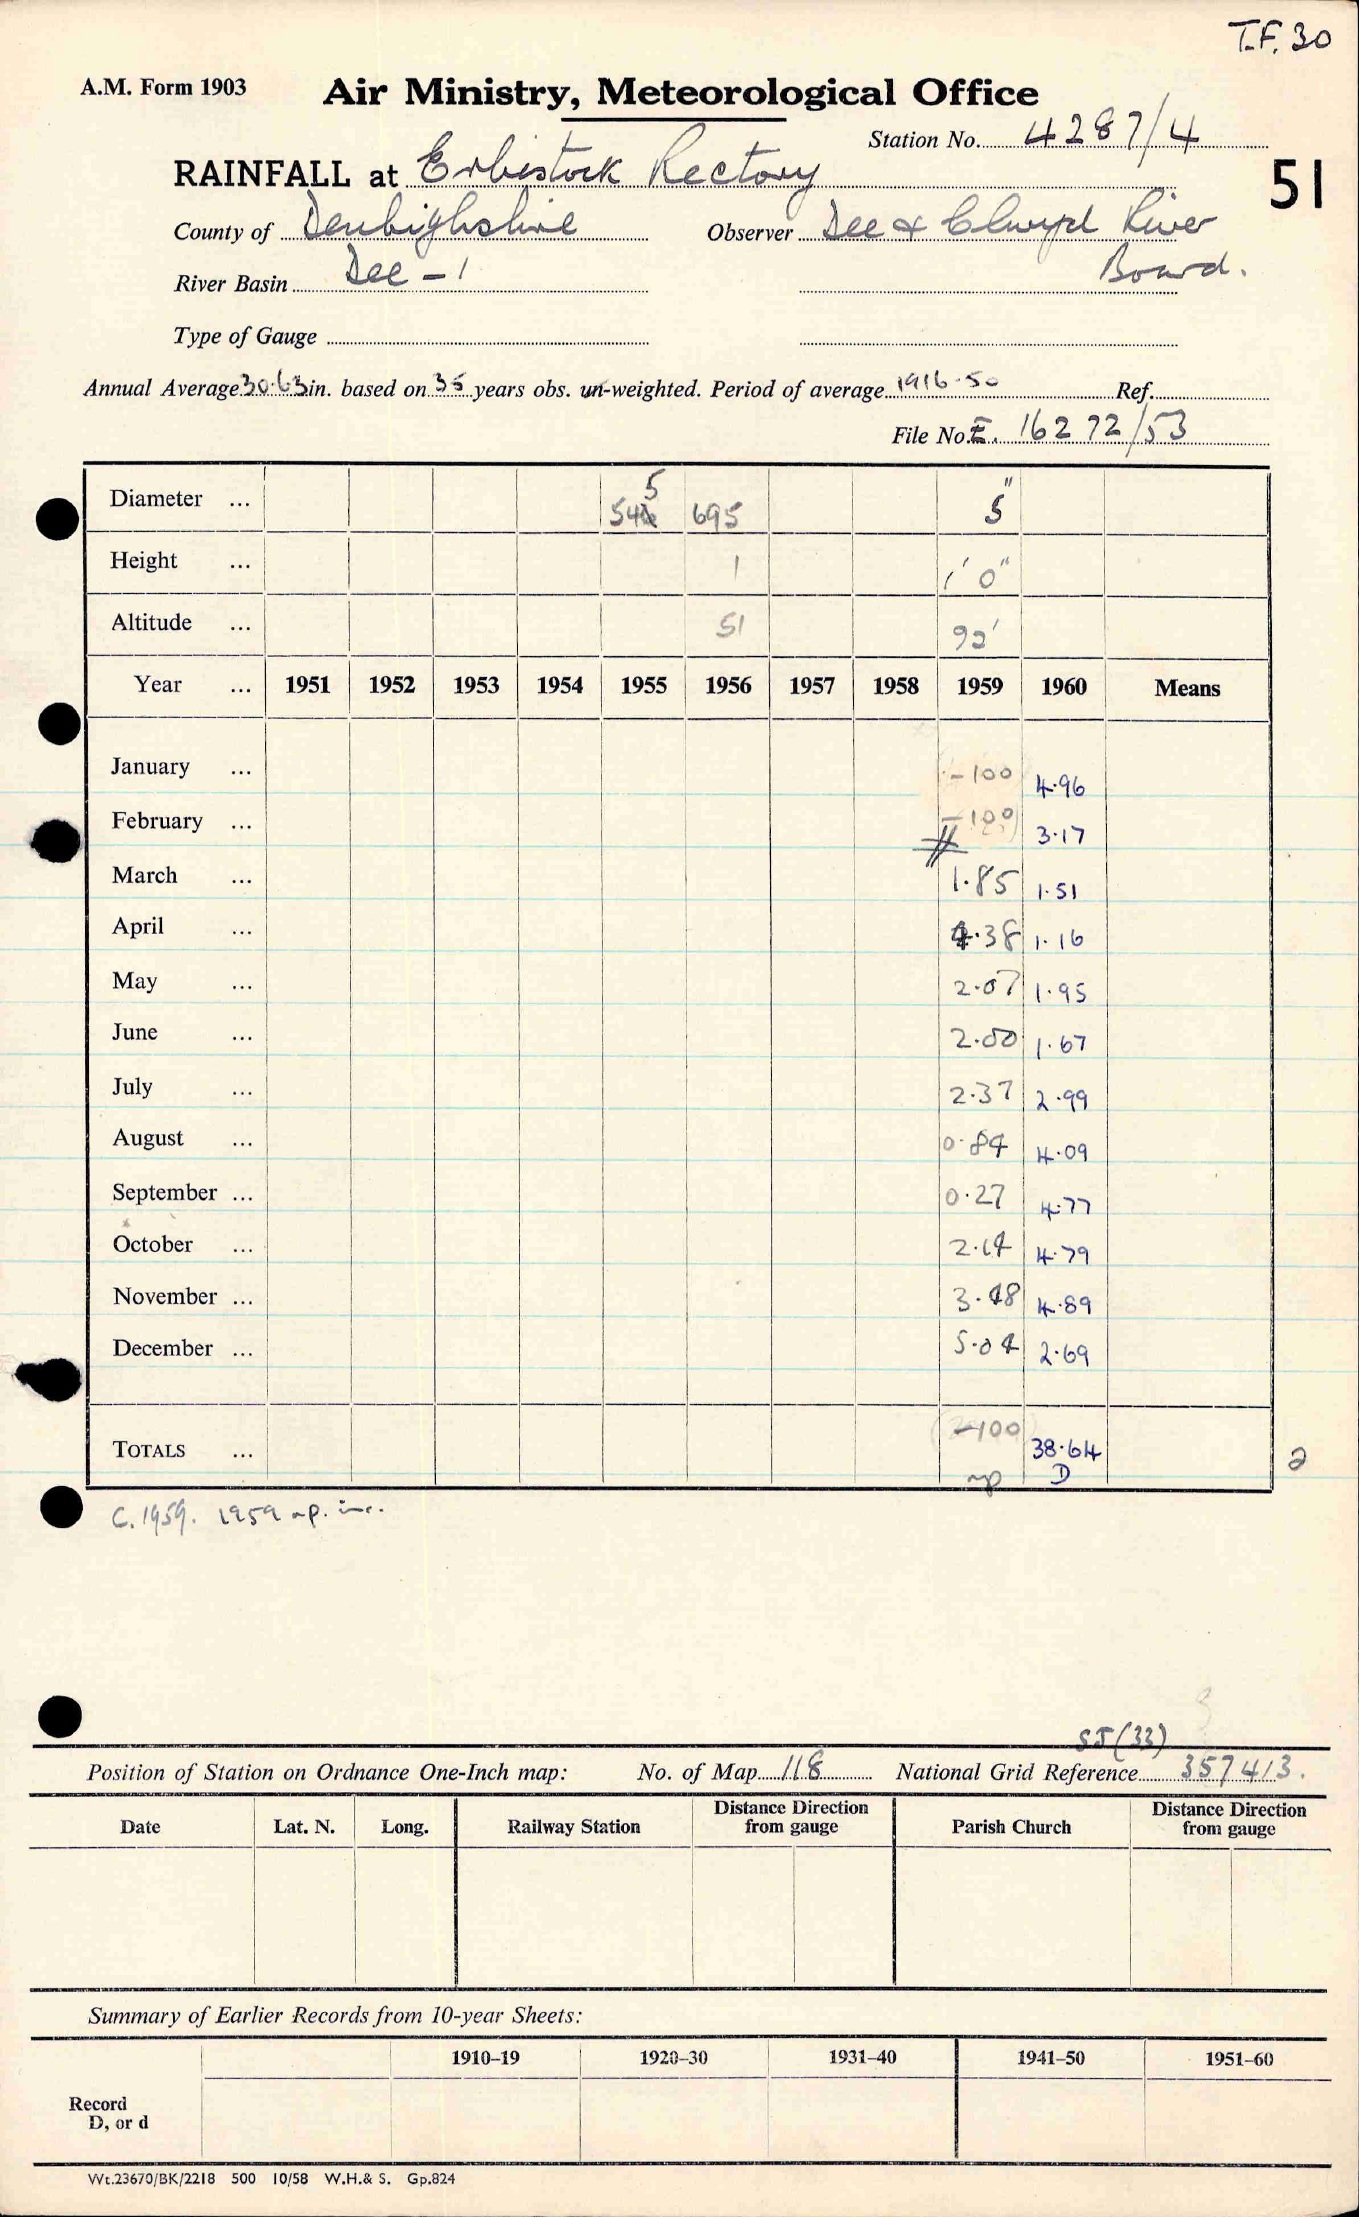 T.F. 30
A.M. Form 1903
Air Ministry, Meteorological Office
Station No. 4287/4
RAINFALL at Erbistock Rectory
51
County of Denbighshire Observer Dee & Clwyd River
Board.
River Basin Dee - 1
Type of Gauge
Annual Average 30.63 in. based on 35 years obs. un-weighted. Period of average 1916-50 Ref.
File No. E. 16272/53
Diameter ... 5 695 5"
Height ... 1 1' 0"
Altitude ... 51 92'
Year ... 1951 1952 1953 1954 1955 1956 1957 1958 1959 1960 Means
January ... -100 4.96
February ... -100 3.17
March ... 1.85 1.51
April ... 4.38 1.16
May ... 2.07 1.95
June ... 2.00 1.67
July ... 2.37 2.99
August ... 0.84 4.09
September ... 0.27 4.77
October ... 2.14 4.79
November ... 3.48 4.89
December ... 5.04 2.69
TOTALS ... -100 38.64
D
2
C. 1959. 1959 inc.
SJ (33)
Position of Station on Ordnance One-Inch map: No. of Map 118 National Grid Reference 357413.
Date Lat. N. Long. Railway Station Distance Direction from gauge Parish Church Distance Direction from gauge
Summary of Earlier Records from 10-year Sheets:
1910–19 1920–30 1931–40 1941–50 1951–60
Record
D, or d
Wt.23670/BK/2218 500 10/58 W.H.& S. Gp.824